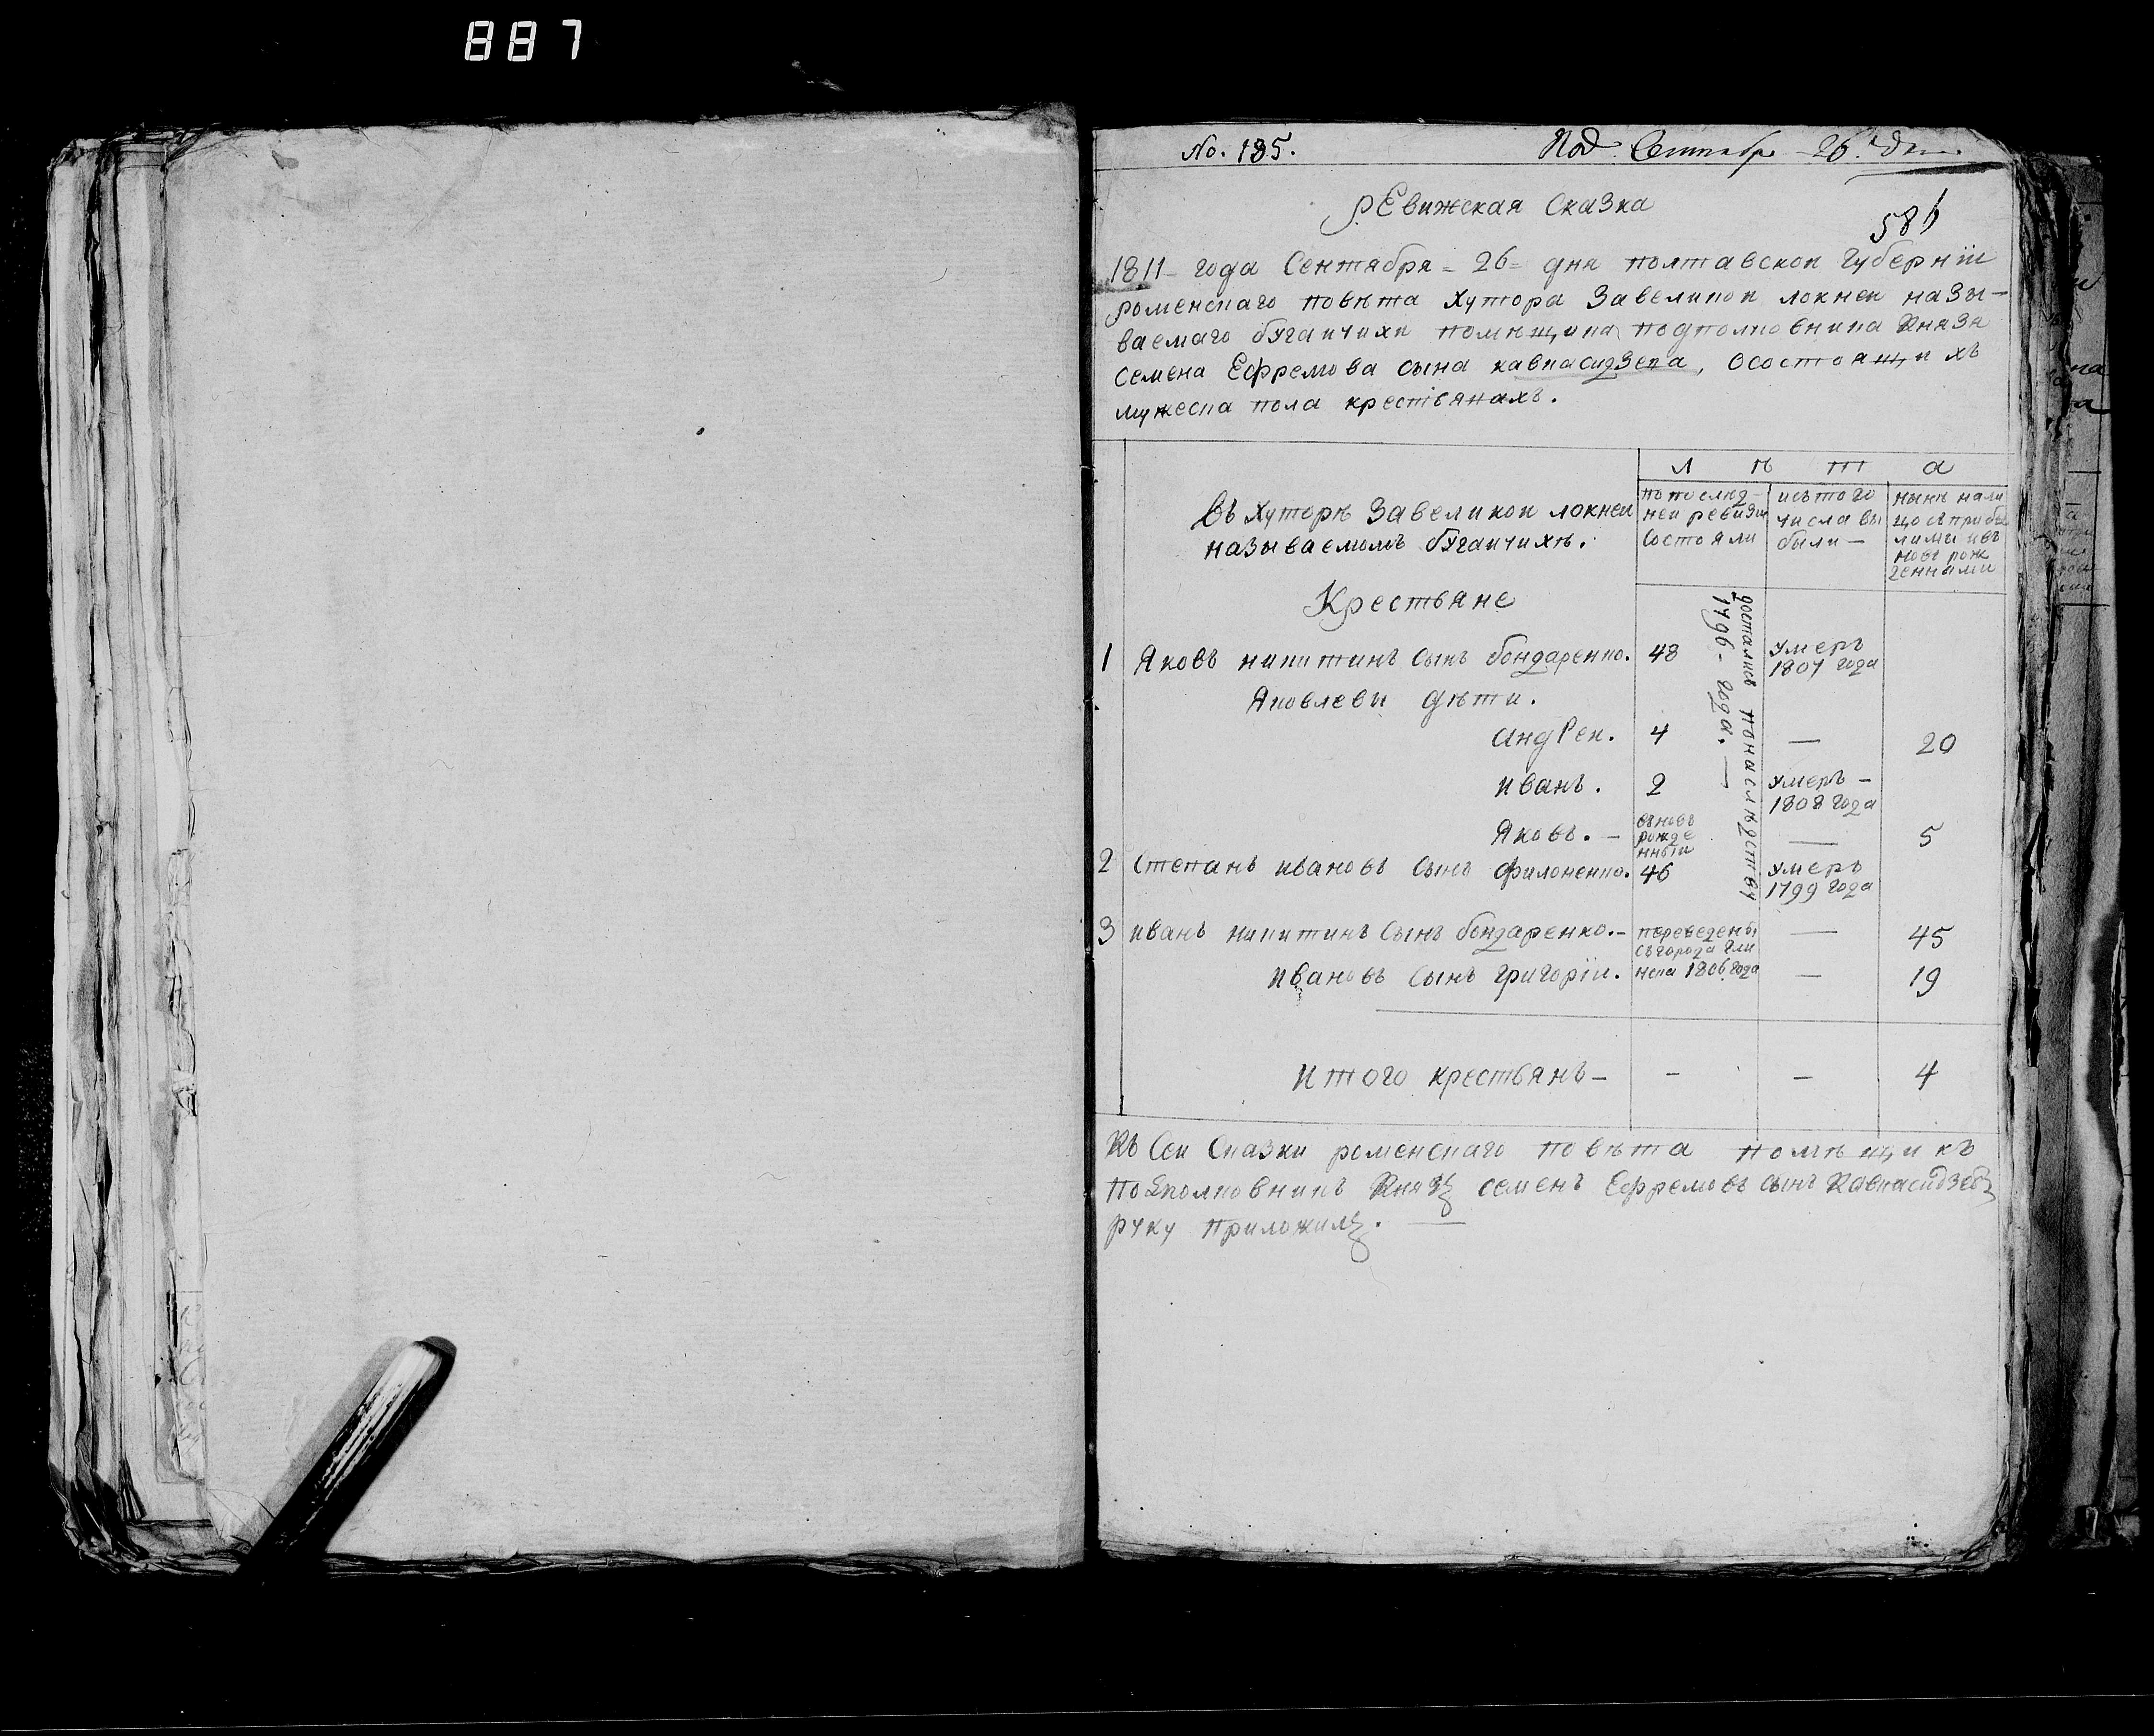 887
No. 185.
Под. Сентябр 26. дня.
рЕвижская Сказка
586
1811 года Сентября = 26 = дня полтавской губернїи
роменскаго повѣта хутора Завеликой локней назы-
ваемаго бугаичихи помѣщика подполковника Князя
семена Ефремова сына кавкасидзева, осостоящихъ
мужеска пола крестьянахъ.
Въ хуторѣ Завеликой локней
называемомъ бугаичихѣ.
Л ѣ т а
попослед-
ней ревизіи
состояли
исътого
числа вы
были —
нынѣ нали
цо съ прибы
лыми ивъ
новь рож
денными
Крестьяне
достались понаслѣдству
1796 - года. —
1 Яковъ никитинъ сынъ бондаренко. 48 умеръ 1807 года
Яковлевы дѣти.
андрей. 4 — 20
иванъ. 2 умеръ - 1808 года
Яковъ. — вновь рожденный — 5
2 Степанъ ивановъ сынъ филоненко. 46 умеръ 1799 года
3 иванъ никитинъ сынъ бондаренко. - переведены — 45
съгорода Гли
ивановъ сынъ григорїи. нска 1806 года — 19
итого крестьянъ — - - 4
Къ сей сказки роменскаго повѣта помѣщикъ
подполковникъ Князь семенъ Ефремовъ сынъ Кавкасидзевъ
руку приложилъ. —